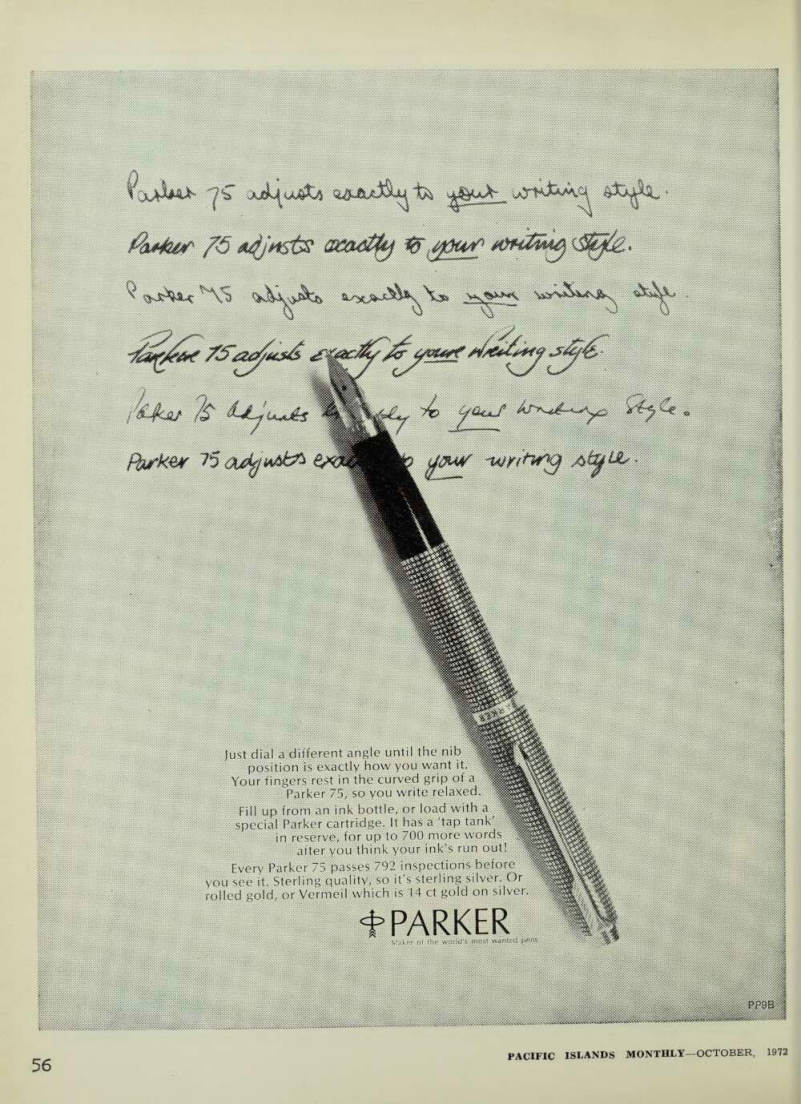 Parker 75 adjusts exactly to your writing style.
Parker 75 adjusts exactly to your writing style.
Parker 75 adjusts exactly to your writing style.
Parker 75 adjusts exactly to your writing style.
Parker 75 adjusts to your writing style.
Parker 75 adjusts to your writing style.
PARKER
Just dial a different angle until the nib
position is exactly how you want it.
Your fingers rest in the curved grip of a
Parker 75, so you write relaxed.
Fill up from an ink bottle, or load with a
special Parker cartridge. It has a 'tap tank'
in reserve, for up to 700 more words
after you think your ink's run out!
Every Parker 75 passes 792 inspections before
you see it. Sterling quality, so it's sterling silver. Or
rolled gold, or Vermeil which is 14 ct gold on silver.
PARKER
Maker of the world's most wanted pens
PP9B
56
PACIFIC ISLANDS MONTHLY—OCTOBER, 1972